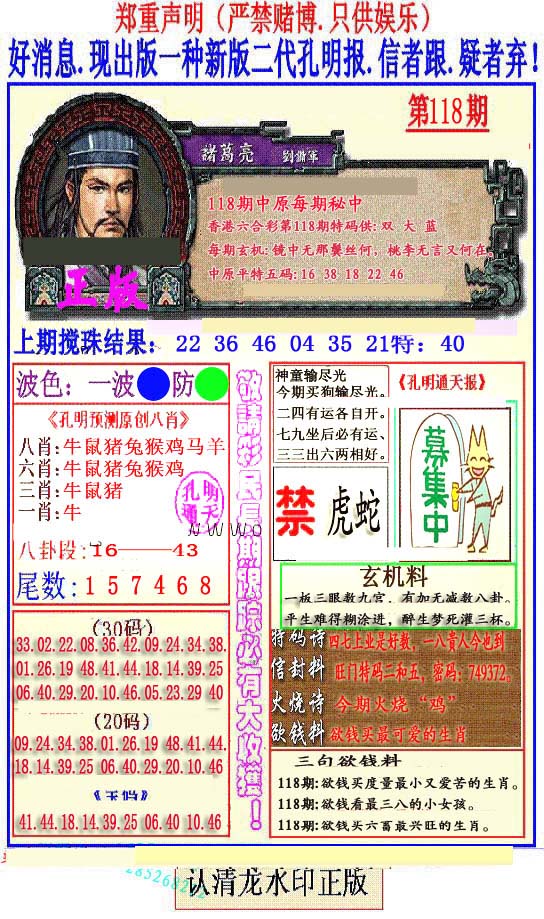 郑重声明（严禁赌博.只供娱乐）
好消息.现出版一种新版二代孔明报.信者跟.疑者弃!
第118期
諸葛亮 劉備軍
118期中原每期秘中
香港六合彩第118期特码供: 双 大 蓝
每期玄机: 镜中无那鬓丝何, 桃李无言又何在。
中原平特五码: 16 38 18 22 46
正版
上期搅珠结果: 22 36 46 04 35 21特: 40
波色: 一波 防
《孔明预测原创八肖》
八肖: 牛鼠猪兔猴鸡马羊
六肖: 牛鼠猪兔猴鸡
三肖: 牛鼠猪
一肖: 牛
孔明通天
www
八卦段: 16——43
尾数: 1 5 7 4 6 8
(30码)
33.02.22.08.36.42.09.24.34.38.
01.26.19 48.41.44.18.14.39.25
06.40.29.20.10.46.05.23.29 40
(20码)
09.24.34.38.01.26.19 48.41.44.
18.14.39.25 06.40.29.20.10.46
41.44.18.14.39.25 06.40 10.46
敬請彩民長期跟踪必有大收獲！
神童输尽光
今期买狗输尽光。
二四有运各自开。
七九坐后必有运、
三三出六两相好。
《孔明通天报》
禁 虎蛇
募集中
玄机料
一板三眼数九宫, 有加无减数八卦。
平生难得糊涂进, 醉生梦死灌三杯。
特码诗 四七上业是好数, 一八贵人今也到
信封料 旺门特码二和五, 密码: 749372。
火烧诗 今期火烧“鸡”
欲钱料 欲钱买最可爱的生肖
三句欲钱料
118期: 欲钱买度量最小又爱苦的生肖。
118期: 欲钱看最三八的小女孩。
118期: 欲钱买六畜最兴旺的生肖。
认清龙水印正版